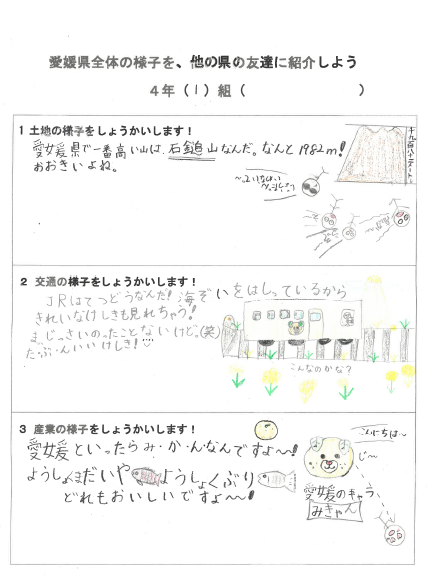 愛媛県全体の様子を、他の県の友達に紹介しよう
4年（1）組（　　　　　　）
1 土地の様子をしょうかいします！
愛媛県で一番高い山は、石鎚山なんだ。なんと1982m！
おおきいよね。
2 交通の様子をしょうかいします！
JRはてつどうなんだ！海ぞいをはしっているから
きれいなけしきも見れちゃう！
まだじっさいのったことないけど。(笑)
たぶ・んいいけしき！♡
こんなのかな？
3 産業の様子をしょうかいします！
愛媛といったらみ・か・んなんですよ〜！
ようしょくまだいや ようしょくぶり
どれもおいしいですよ〜！
こんにちは〜
じ〜
愛媛のキャラ
みきゃん